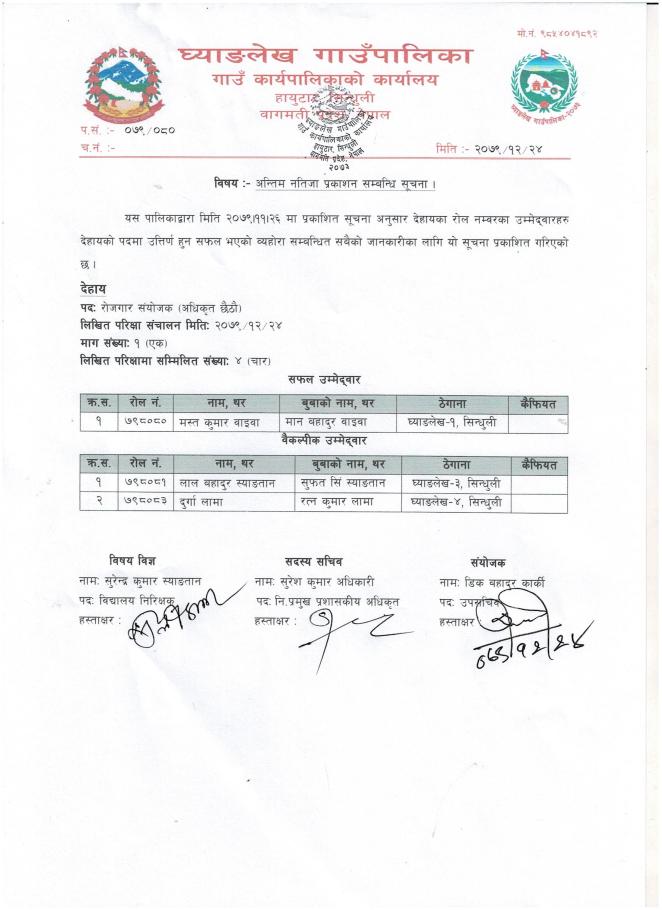 मो.नं. ९८५४०४१८९२
घ्याङलेख गाउँपालिका
गाउँ कार्यपालिकाको कार्यालय
हायुटार, सिन्धुली
वागमती प्रदेश, नेपाल
घ्याङलेख गाउँपालिका
गाउँ कार्यपालिकाको कार्यालय
हायुटार, सिन्धुली
वागमती प्रदेश, नेपाल
२०७३
घ्याङलेख गाउँपालिका-२०७३
प.सं. :- ०७९/०८०
च.नं. :-
मिति :- २०७९/१२/२४
विषय :- अन्तिम नतिजा प्रकाशन सम्बन्धि सूचना ।
यस पालिकाद्वारा मिति २०७९।११।२६ मा प्रकाशित सूचना अनुसार देहायका रोल नम्बरका उम्मेद्वारहरु
देहायको पदमा उत्तिर्ण हुन सफल भएको व्यहोरा सम्बन्धित सबैको जानकारीका लागि यो सूचना प्रकाशित गरिएको
छ ।
देहाय
पद: रोजगार संयोजक (अधिकृत छैठौ)
लिखित परिक्षा संचालन मिति: २०७९/१२/२४
माग संख्या: १ (एक)
लिखित परिक्षामा सम्मिलित संख्या: ४ (चार)
सफल उम्मेद्वार
क्र.स. रोल नं. नाम, थर बुबाको नाम, थर ठेगाना कैफियत
१ ७९८०८० मस्त कुमार वाइवा मान बहादुर वाइवा घ्याङलेख-१, सिन्धुली
वैकल्पीक उम्मेद्वार
क्र.स. रोल नं. नाम, थर बुबाको नाम, थर ठेगाना कैफियत
१ ७९८०८१ लाल बहादुर स्याङतान सुफत सिं स्याङतान घ्याङलेख-३, सिन्धुली
२ ७९८०८३ दुर्गा लामा रत्न कुमार लामा घ्याङलेख-४, सिन्धुली
विषय विज्ञ सदस्य सचिव संयोजक
नाम: सुरेन्द्र कुमार स्याङतान नाम: सुरेश कुमार अधिकारी नाम: डिक बहादुर कार्की
पद: विद्यालय निरिक्षक पद: नि.प्रमुख प्रशासकीय अधिकृत पद: उपसचिव
हस्ताक्षर : हस्ताक्षर : हस्ताक्षर
०७९/१२/२४